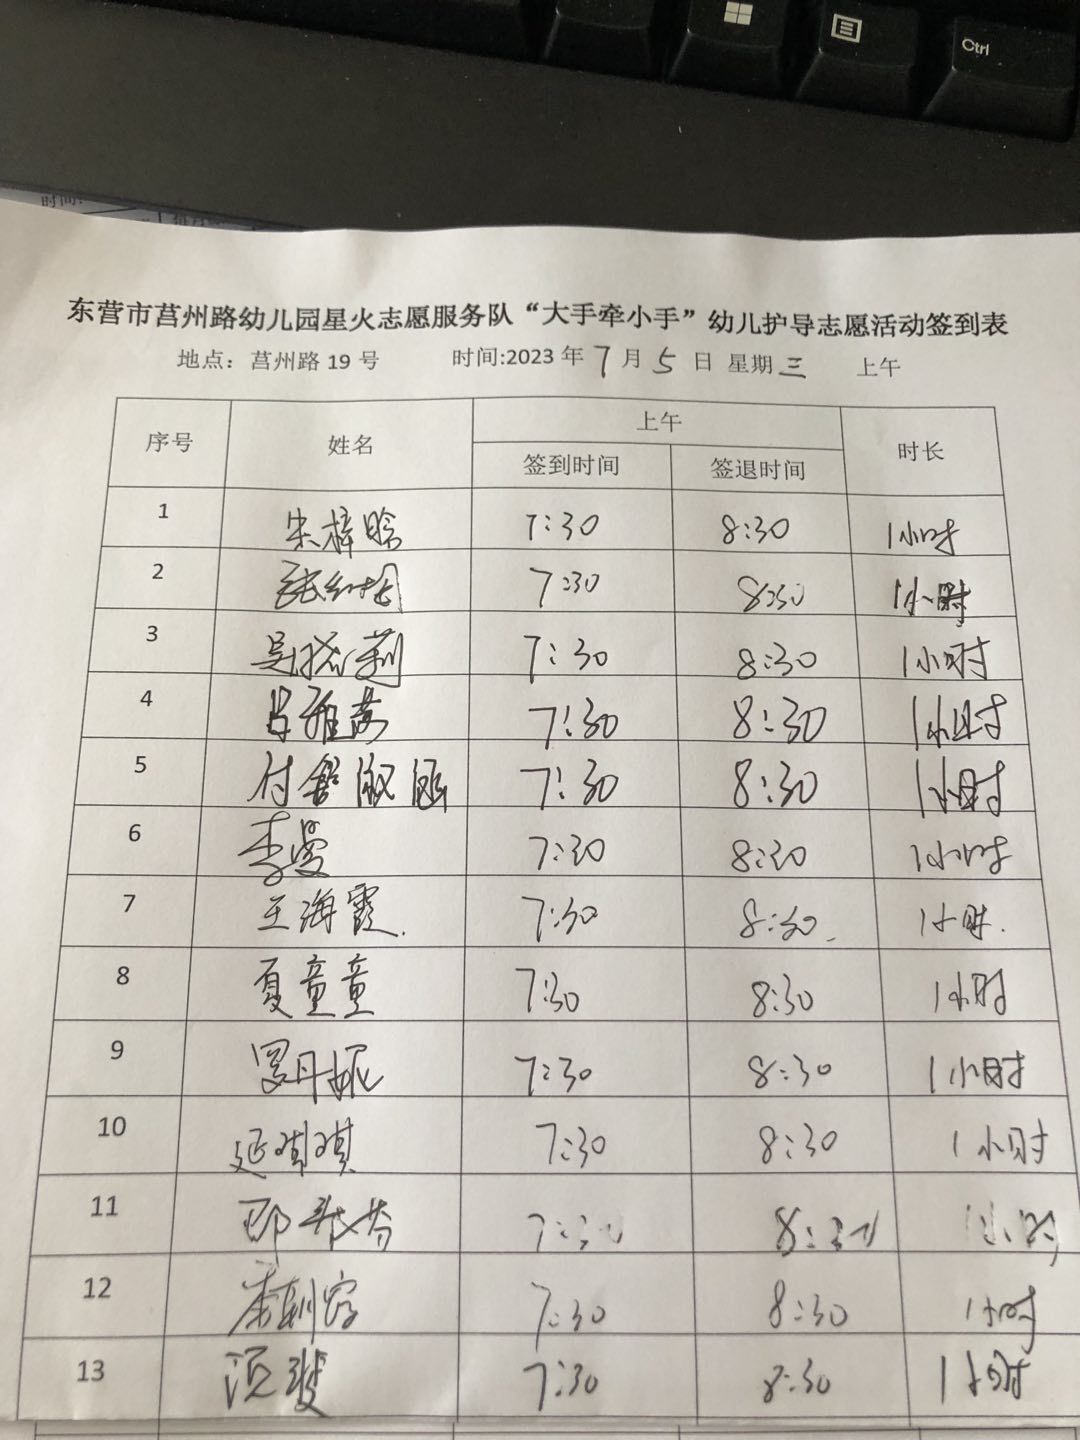 Ctrl
时间:
东营市莒州路幼儿园星火志愿服务队“大手牵小手”幼儿护导志愿活动签到表
地点：莒州路 19 号 时间:2023 年 7 月 5 日 星期 三 上午
序号 姓名 上午 时长
签到时间 签退时间
1 朱梓晗 7:30 8:30 1小时
2 7:30 8:30 1小时
3 7:30 8:30 1小时
4 7:30 8:30 1小时
5 付舍淑涵 7:30 8:30 1小时
6 李曼 7:30 8:30 1小时
7 王海霞. 7:30 8:30. 1小时.
8 夏童童 7:30 8:30 1小时
9 罗丹妮 7:30 8:30 1小时
10 延琪琪 7:30 8:30 1小时
11 7:30 8:30 1小时
12 7:30 8:30 1小时
13 7:30 8:30 1小时